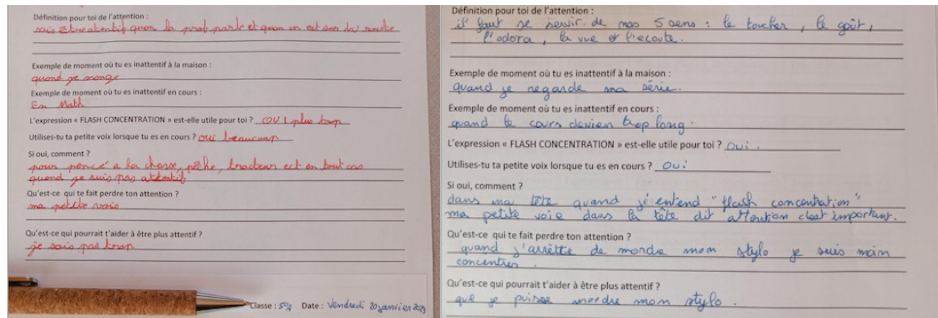 Définition pour toi de l'attention :
quon la prof parle et quon on est sur la route
Exemple de moment où tu es inattentif à la maison :
quand je mange
Exemple de moment où tu es inattentif en cours :
En Math
L'expression « FLASH CONCENTRATION » est-elle utile pour toi ? OUI plus
Utilises-tu ta petite voix lorsque tu es en cours ? oui beaucoup
Si oui, comment ?
pour poncé a la chasse, pêche, tracteur ect en tout cas
quand je suis pas attentif
Qu'est-ce qui te fait perdre ton attention ?
ma petite voix
Qu'est-ce qui pourrait t'aider à être plus attentif ?
je sais pas trop
Classe : 5 Date : Vendredi 20 janvier
Définition pour toi de l'attention :
il faut se servir de nos 5 sens : le toucher, le goût,
l'odora, la vue et l'ecoute.
Exemple de moment où tu es inattentif à la maison :
quand je regarde ma série.
Exemple de moment où tu es inattentif en cours :
quand le cours devien trop long.
L'expression « FLASH CONCENTRATION » est-elle utile pour toi ? Oui.
Utilises-tu ta petite voix lorsque tu es en cours ? Oui
Si oui, comment ?
dans ma tête quand j'entend "flash concentration"
ma petite voie dans la tête dit attention c'est important.
Qu'est-ce qui te fait perdre ton attention ?
quand j'arrètte de mordre mon stylo je suis moin
concentrer.
Qu'est-ce qui pourrait t'aider à être plus attentif ?
que je puisse mordre mon stylo.